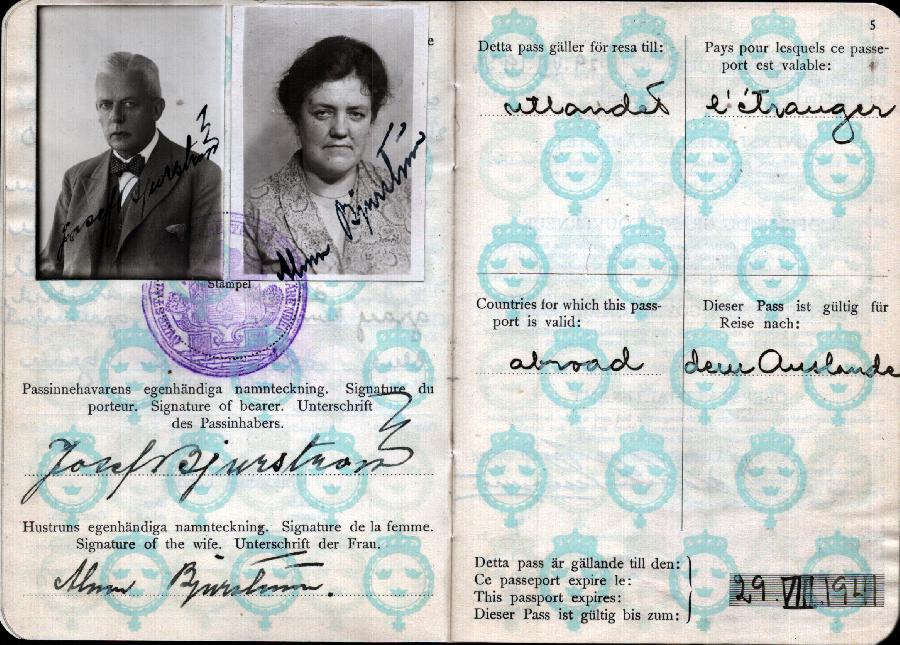 Josef Bjurström
Alma Bjurström
Stämpel
Passinnehavarens egenhändiga namnteckning. Signature du
porteur. Signature of bearer. Unterschrift
des Passinhabers.
Josef Bjurström
Hustruns egenhändiga namnteckning. Signature de la femme.
Signature of the wife. Unterschrift der Frau.
Alma Bjurström.
5
Detta pass gäller för resa till:
utlandet
Pays pour lesquels ce passe-
port est valable:
l'étranger
Countries for which this pass-
port is valid:
abroad
Dieser Pass ist gültig für
Reise nach:
dem Auslande
Detta pass är gällande till den:
Ce passeport expire le:
This passport expires:
Dieser Pass ist gültig bis zum:
29. VII. 1941